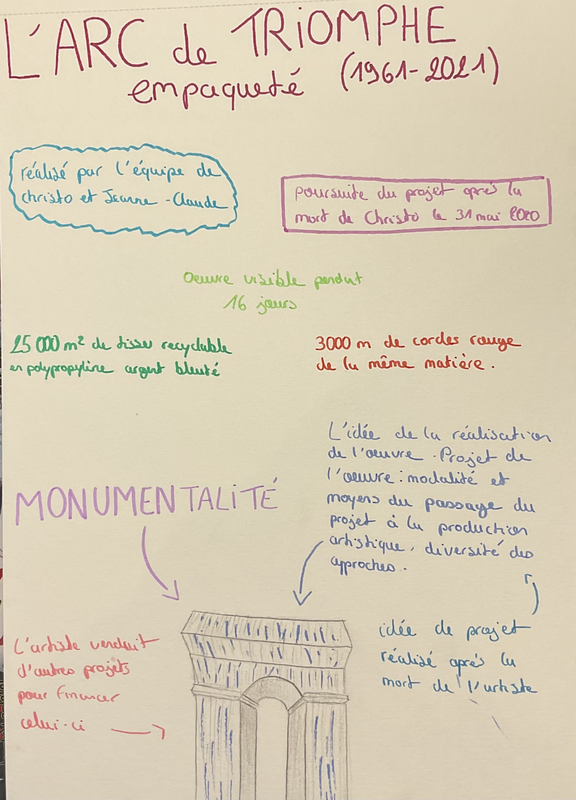 L'ARC de TRiOMPHE
empaqueté (1961-2021)
réalisé par l'équipe de
christo et Jeanne-Claude
poursuite du projet après la
mort de Christo le 31 mai 2020
Oeuvre visible pendant
16 jours
25 000 m² de tissu recyclable
en polypropyline argent bleuté
3000 m de cordes rouge
de la même matière.
L'idée de la réalisation
de l'oeuvre. Projet de
l'oeuvre : modalité et
moyens du passage du
projet à la production
artistique, diversité des
approches.
MONUMENTALITÉ
idée de projet
réalisé après la
mort de l'artiste
L'artiste vendait
d'autres projets
pour financer
celui-ci